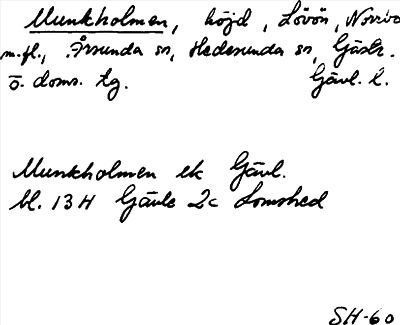 Munkholmen, höjd, Lövön, Norrbo
m.fl., Årsunda sn, Hedesunda sn, Gästr.
ö. doms. tg. Gävl. l.
Munkholmen ek Gävl.
bl. 13 H Gävle 2c Lomshed
SH-60